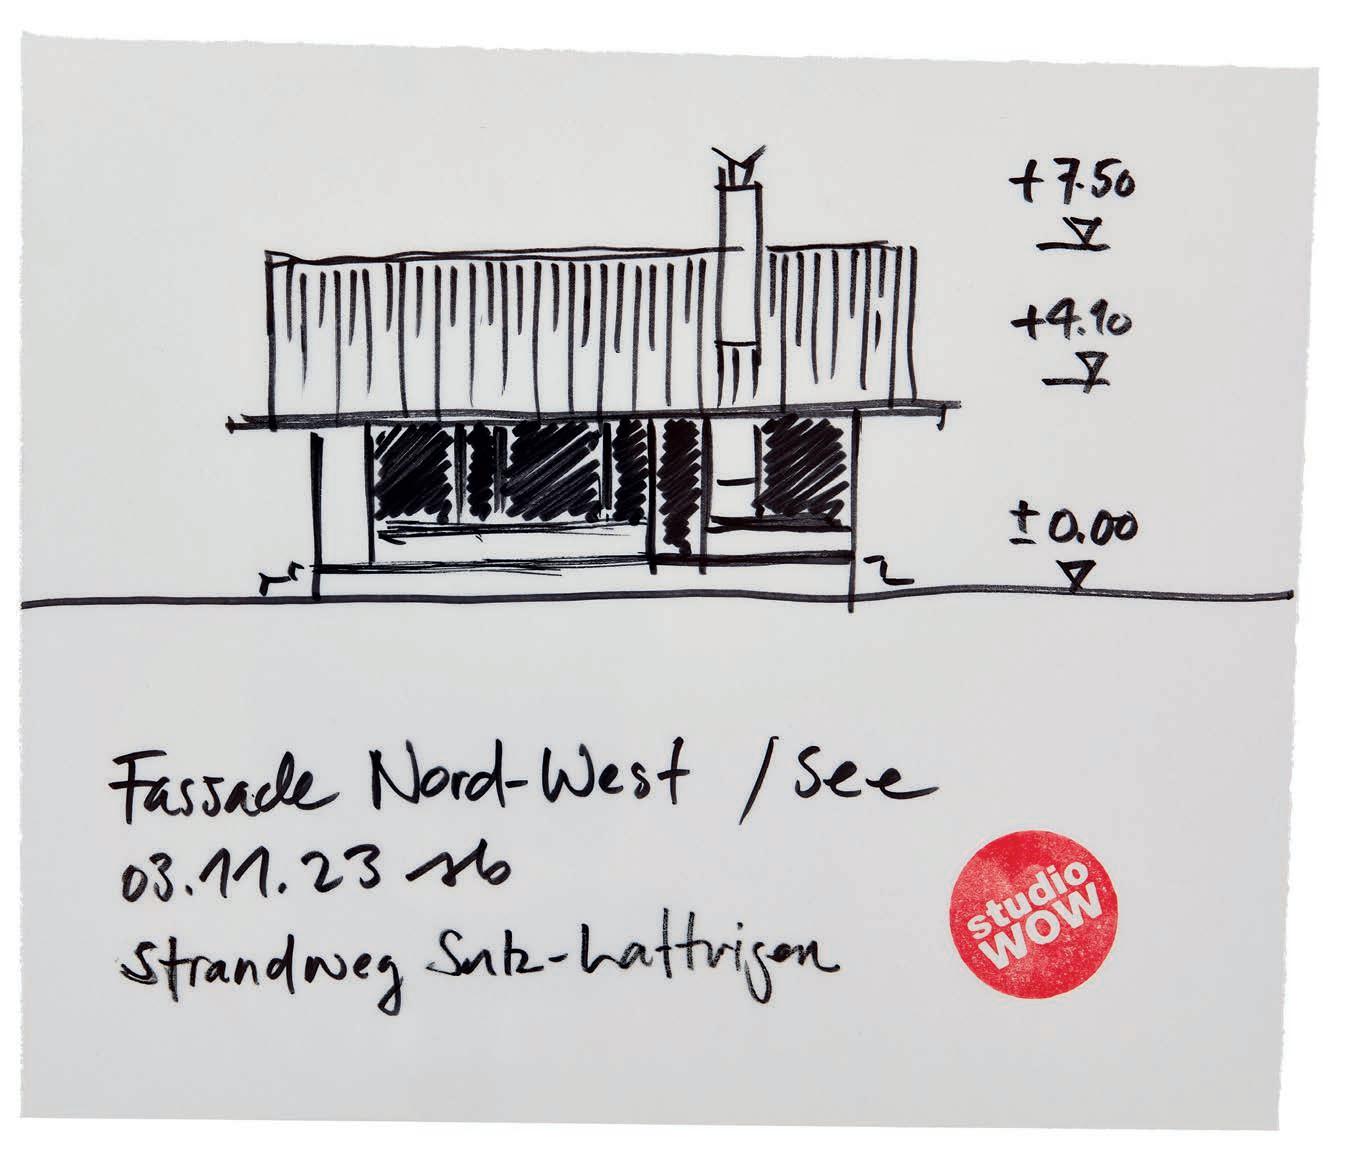 +7.50
+4.10
±0.00
Fassade Nord-West / See
03.11.23 sb
Strandweg Sutz-Lattrigen
studio
WOW